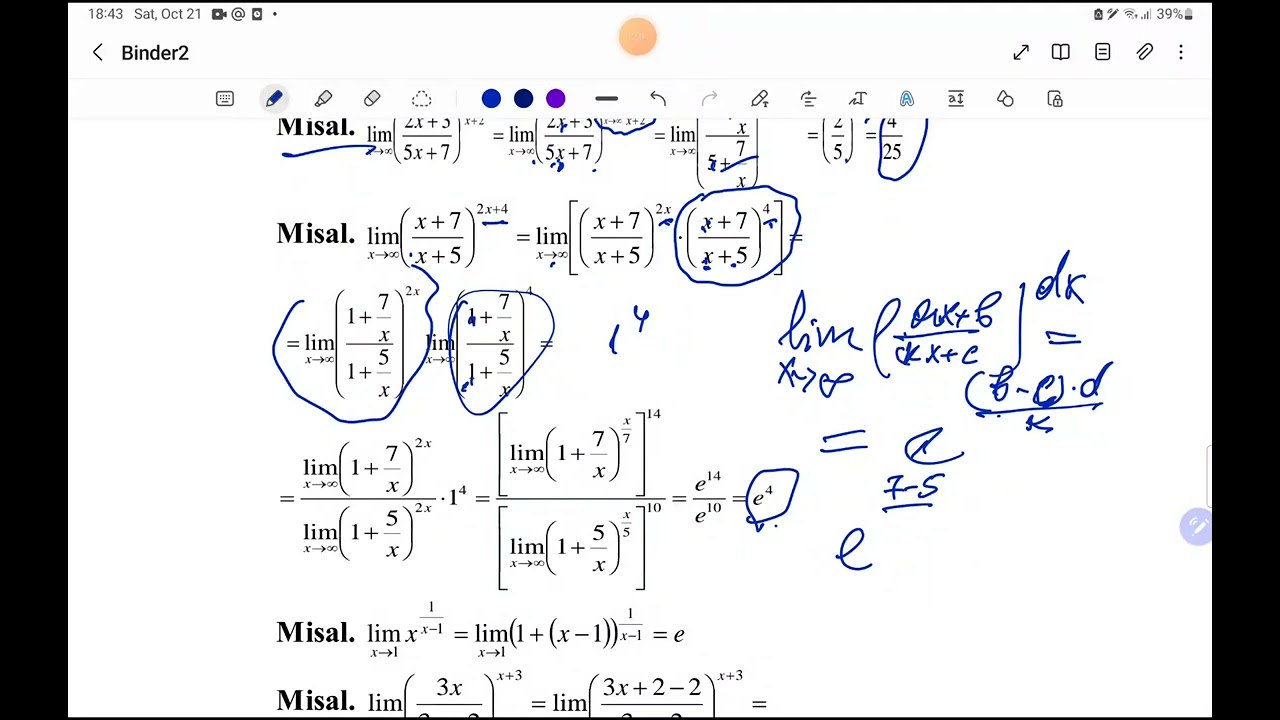 18:43 Sat, Oct 21 39%
Binder2
Misal. lim x→∞ ((2x+3)/(5x+7))^(x+2) = lim x→∞ ((2x+3)/(5x+7)) = lim x→∞ = (2/5) = 4/25
Misal. lim x→∞ ((x+7)/(x+5))^(2x+4) = lim x→∞ [((x+7)/(x+5))^(2x) · ((x+7)/(x+5))^4] =
= lim x→∞ ((1+7/x)/(1+5/x))^(2x) lim x→∞ ((1+7/x)/(1+5/x))^4 = 1^4
= (lim x→∞ (1+7/x)^(2x))/(lim x→∞ (1+5/x)^(2x)) · 1^4 = [lim x→∞ (1+7/x)^(x/7)]^14/[lim x→∞ (1+5/x)^(x/5)]^10 = e^14/e^10 = e^4
lim x→∞
=
(b-c)·d
= e
7-5
e
Misal. lim x→1 x^(1/(x−1)) = lim x→1 (1+(x−1))^(1/(x−1)) = e
Misal. lim (3x)^(x+3) = lim (3x+2−2)^(x+3) =